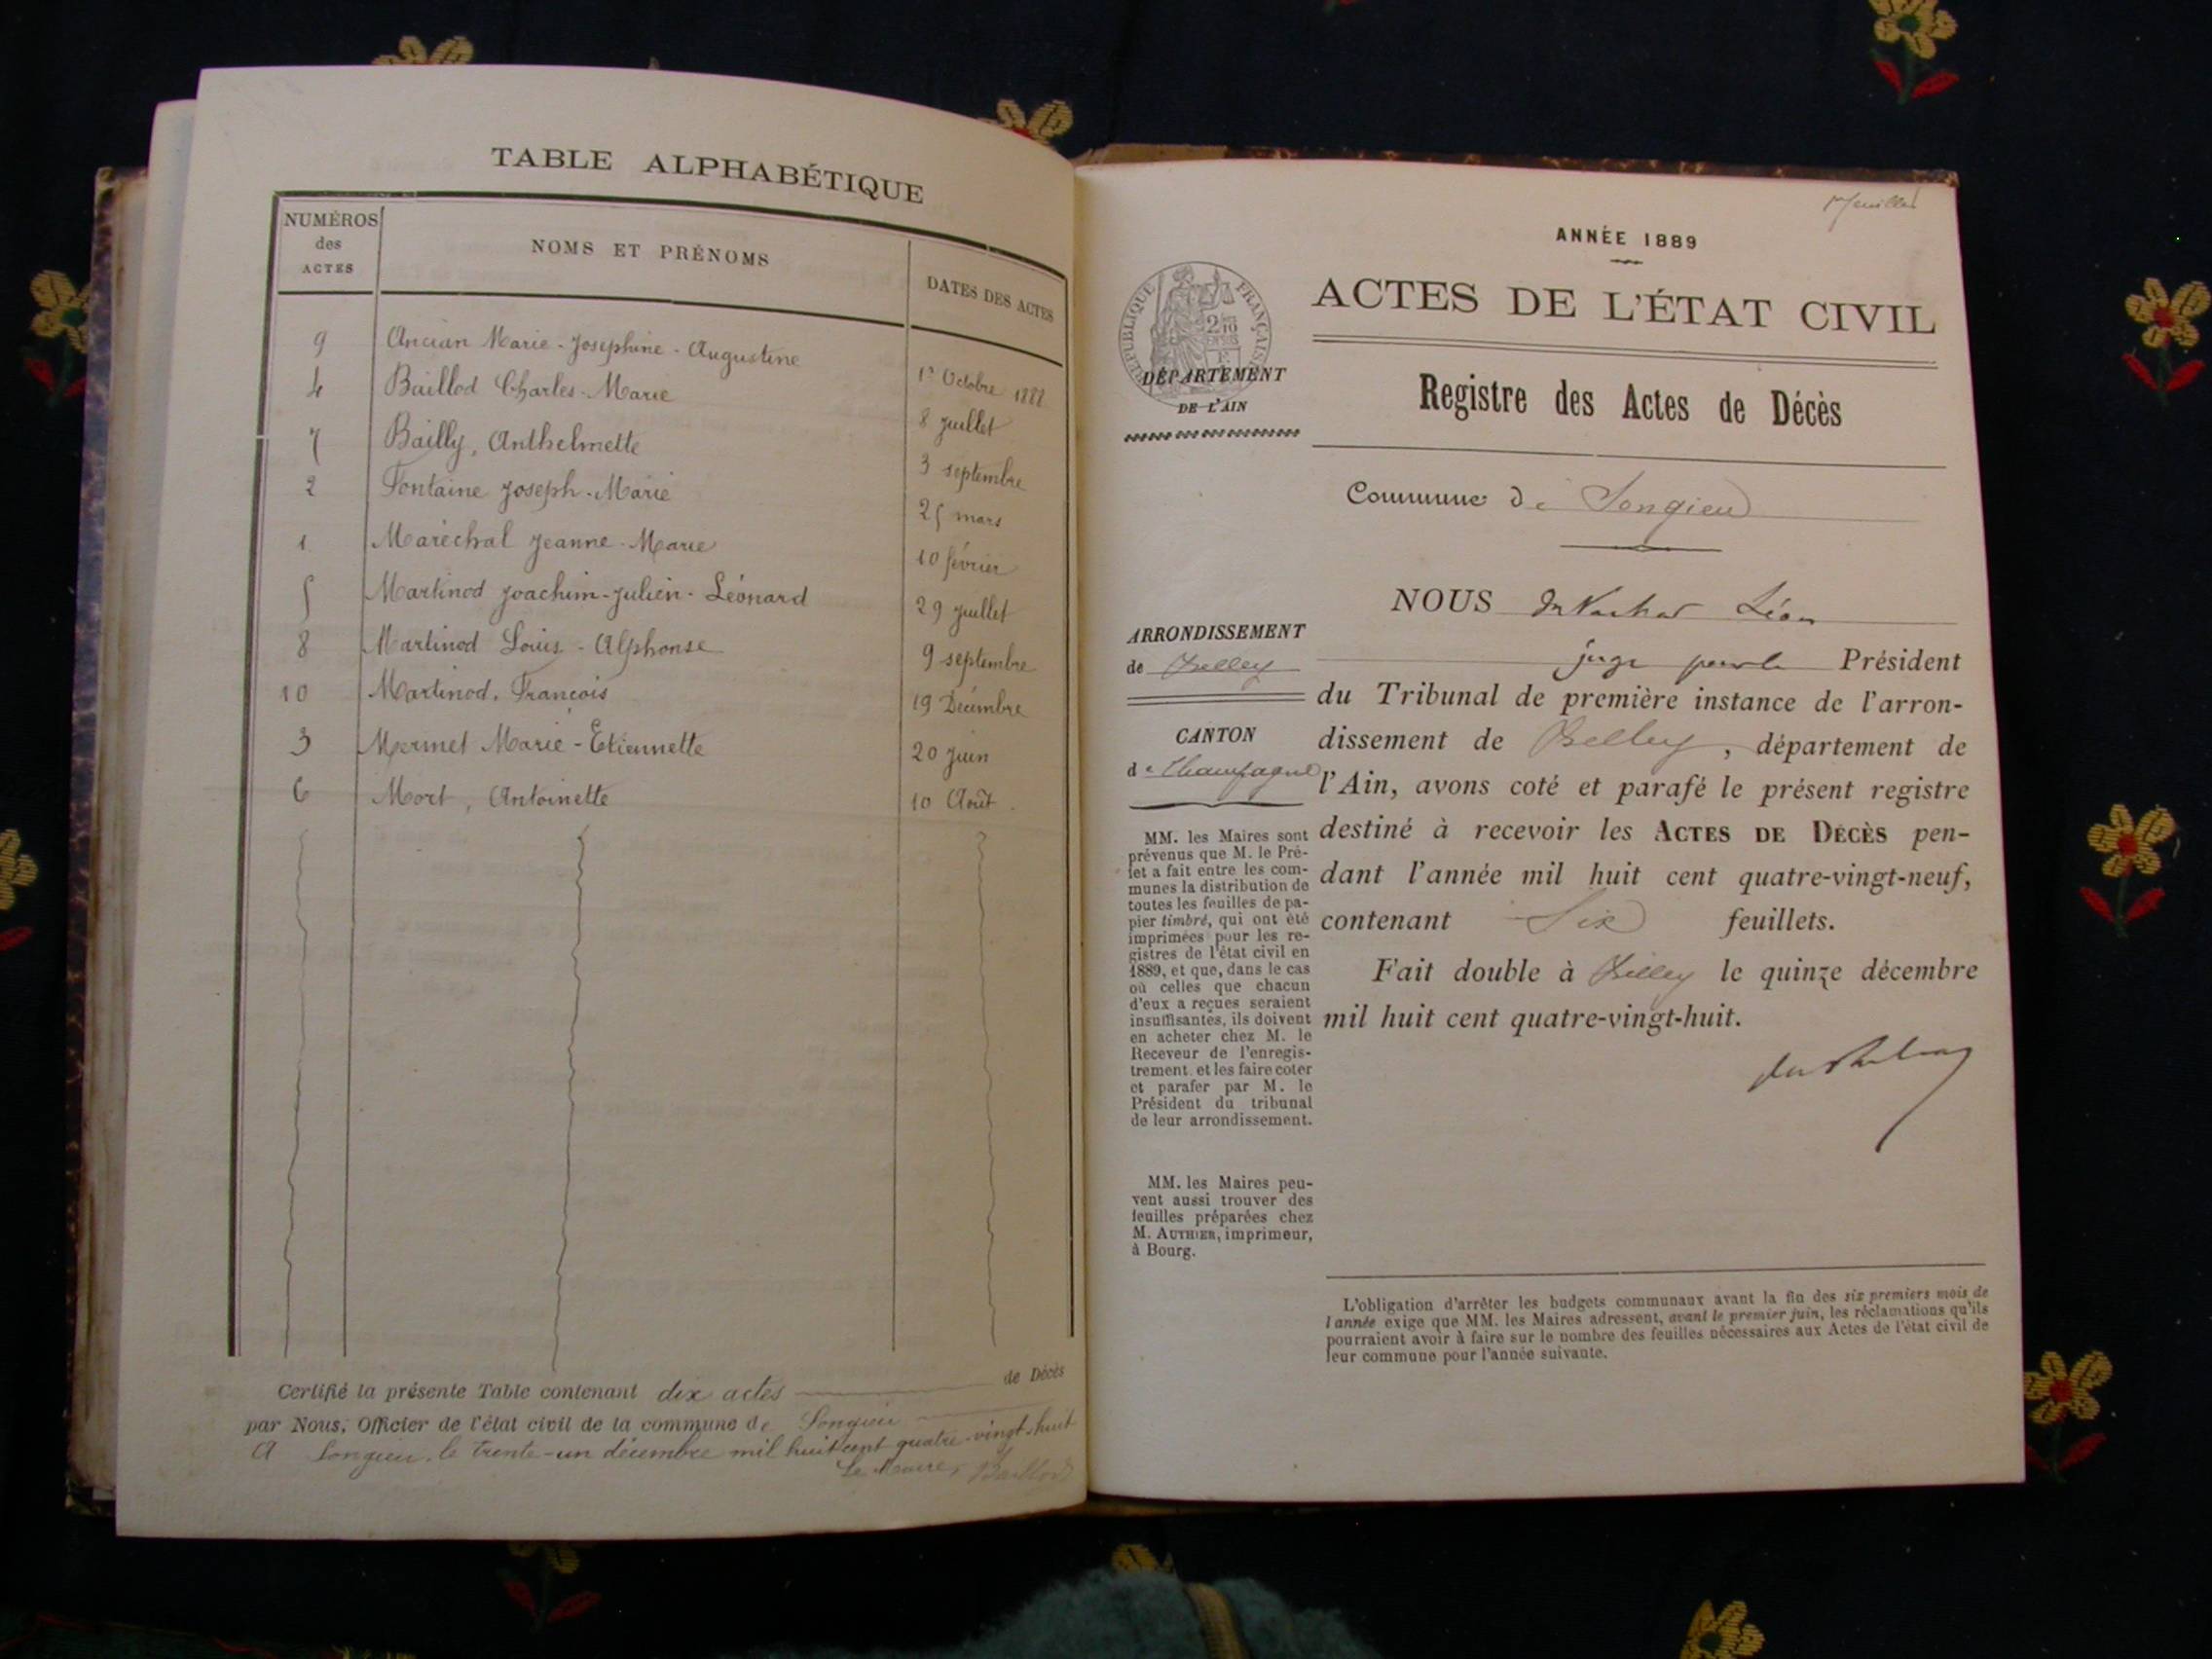 TABLE ALPHABÉTIQUE
NUMÉROS des ACTES NOMS ET PRÉNOMS DATES DES ACTES
9 Ancian Marie-Joséphine-Augustine 1er Octobre 1888
4 Baillod Charles-Marie 8 juillet
7 Bailly, Anthelmette 3 septembre
2 Fontaine Joseph-Marie 25 mars
1 Maréchal Jeanne-Marie 10 février
5 Martinod Joachim-Julien-Léonard 29 juillet
8 Martinod Louis-Alphonse 9 septembre
10 Martinod, François 19 Décembre
3 Mermet Marie-Etiennette 20 juin
6 Mort, Antoinette 10 Août
Certifié la présente Table contenant dix actes de Décès
par Nous, Officier de l'état civil de la commune de Songieu
A Songieu, le trente-un décembre mil huit cent quatre-vingt-huit
Le Maire, Baillod
1er feuillet
ANNÉE 1889
ACTES DE L'ÉTAT CIVIL
RÉPUBLIQUE FRANÇAISE
DÉPARTEMENT
DE L'AIN
Registre des Actes de Décès
Commune de Songieu
ARRONDISSEMENT
de Belley
CANTON
de Champagne
MM. les Maires sont
prévenus que M. le Pré-
fet a fait entre les com-
munes la distribution de
toutes les feuilles de pa-
pier timbré, qui ont été
imprimées pour les re-
gistres de l'état civil en
1889, et que, dans le cas
où celles que chacun
d'eux a reçues seraient
insuffisantes, ils doivent
en acheter chez M. le
Receveur de l'enregis-
trement et les faire coter
et parafer par M. le
Président du tribunal
de leur arrondissement.
MM. les Maires peu-
vent aussi trouver des
feuilles préparées chez
M. AUTHIER, imprimeur,
à Bourg.
NOUS Léon
juge pour le Président
du Tribunal de première instance de l'arron-
dissement de Belley, département de
l'Ain, avons coté et parafé le présent registre
destiné à recevoir les ACTES DE DÉCÈS pen-
dant l'année mil huit cent quatre-vingt-neuf,
contenant Six feuillets.
Fait double à Belley le quinze décembre
mil huit cent quatre-vingt-huit.
L'obligation d'arrêter les budgets communaux avant la fin des six premiers mois de
l'année exige que MM. les Maires adressent, avant le premier juin, les réclamations qu'ils
pourraient avoir à faire sur le nombre des feuilles nécessaires aux Actes de l'état civil de
leur commune pour l'année suivante.